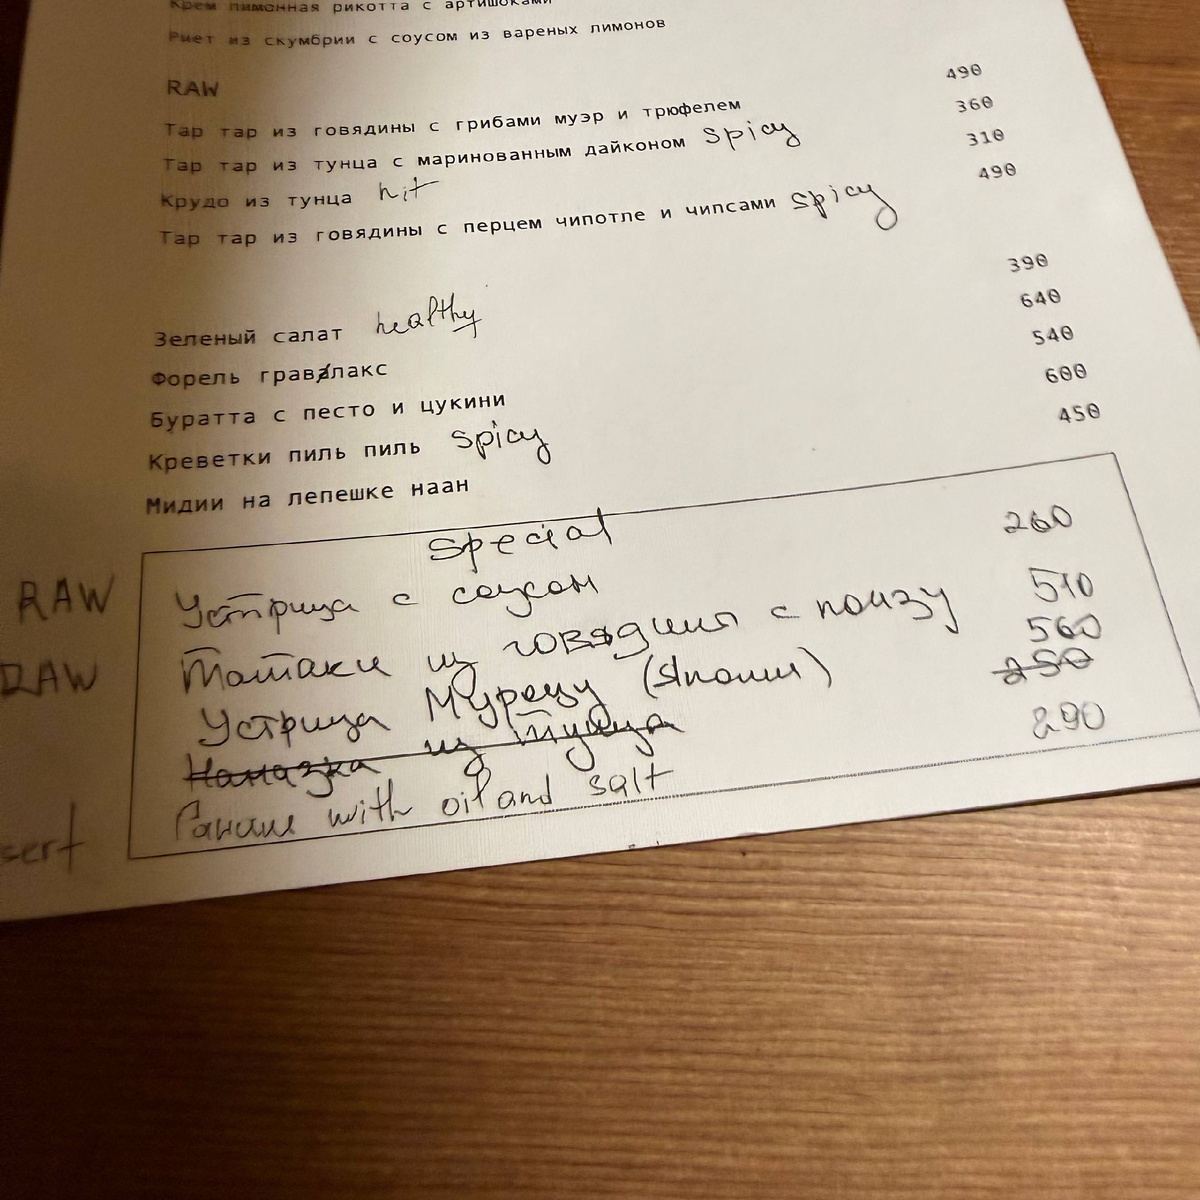 Крем лимонная рикотта с артишоками
Риет из скумбрии с соусом из вареных лимонов
RAW
Тар тар из говядины с грибами муэр и трюфелем 490
Тар тар из тунца с маринованным дайконом spicy 360
Крудо из тунца hit 310
Тар тар из говядины с перцем чипотле и чипсами spicy 490
Зеленый салат healthy 390
Форель гравлакс 640
Буратта с песто и цукини 540
Креветки пиль пиль spicy 600
Мидии на лепешке наан 450
Special
RAW Устрица с соусом 260
Татаки из говядины с понзу 510
RAW Устрица Мурецу (Япония) 560
Намазка из тунца 250
sert Ганаш with oil and salt 290